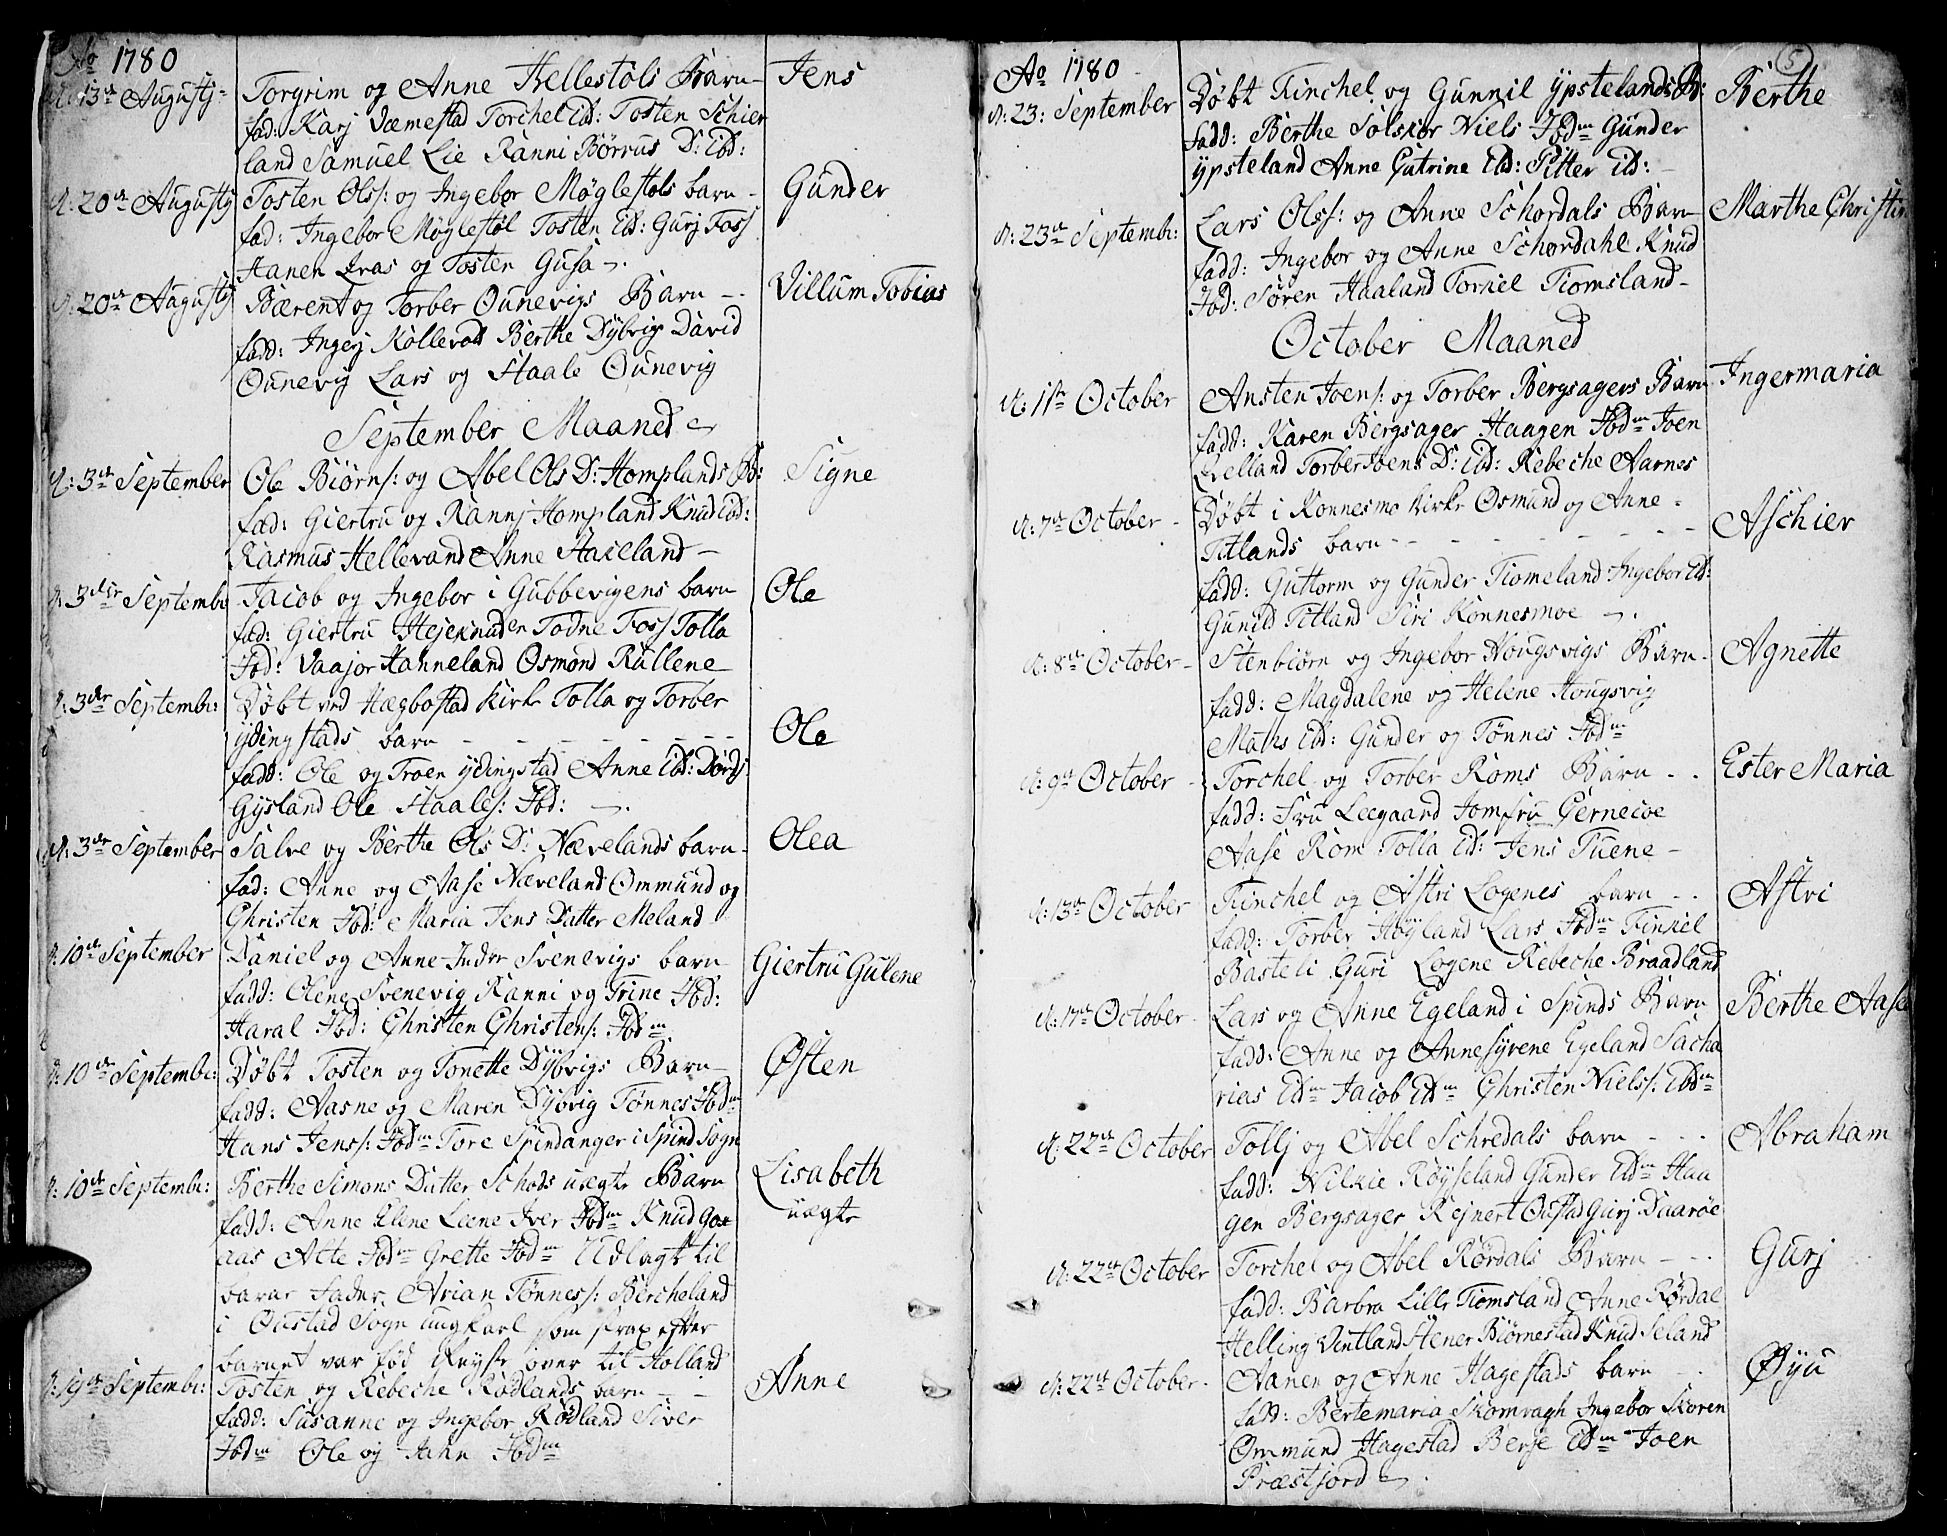 Ao 1780
d: 13de Augustj
Torgrim og Anne Hellestøls Barn
Jens
fad: Karj Væmestad Torchel Ed: Tosten Schier
land Samuel Lie Ranni Børrus D: Ed:
d: 20de Augustj
Tosten Ols/: og Ingebor Møglestøls barn
Gunder
fad: Ingebor Møglestøl Tosten Ed: Gurj Foss
Hanen og Tosten Gusa
d: 20de Augustj
Bærent og Torber Ounevigs Barn
Villum Tobias
fadd: Ingerj Kollevold Berthe Dybvig David
Ounevig Lars og Staale Ounevig
September Maaned
d: 3de September
Ole Biørns/: og Abel Ols D: Homplands B:
Signe
fad: Giertru og Rannj Hompland Knud Ed:
Rasmus Hellevand Anne Haaeland
d: 3de September
Jacob og Ingebor i Gubbevigens barn
Ole
fad: Giertru Todne Foss Tolla
Jbd: Vaajor Hanneland Osmond Rullene
d: 3de Septembr:
Døbt ved Hægbostad Kirke Tolla og Torber
ydingstads barn
Ole
fadd: Ole og Troen ydingstad Anne Ed:
Gysland Ole Staales/: Jbd:
d: 3de September
Salve og Berthe Ols D: Nævelands barn
Olea
fad: Anne og Aase Næveland Ommund og
Christen Jbd: Maria Jens Datter Meland
d: 10de September
Daniel og Anne Svenevigs barn
Giertru Gulene
fadd: Olene Svenevig Ranni og Trine Jbd:
Haral Jbd: Christen Christens/: Jbdm
d: 10de Septembr:
Døbt Tosten og Tonette Dybvigs Barn
Østen
fadd: Aasne og Maren Dybvig Tønnes Jbdm
Hans Jens/: Jbdm Tore Spindanger i Spind Sogn
d: 10de Septembr:
Berthe Simons Datter Schods uægte Barn
Lisabeth
uægte
fadd: Anne Elene Liene Iver Jbdm Knud Goe
aas Atte Jbdm Grette Jbdm Udlagt til
barne fader Arian Tønnes/: Bercheland
i Oustad Sogn ungkarl som strax efter
barnet var fød Reyste over til Holland
d: 19de Septembr:
Tosten og Rebeche Rødlands barn
Anne
fadd: Susanne og Ingebor Rødland Siver
Jbdm Ole og Jahn Jbdm
5
Ao 1780
d: 23: September
Døbt Tinchel og Gunnil ypstelands B:
Berthe
fadd: Berthe Solskor Niels Jbdm Gunder
ypsteland Anne Cutrine Ed: Pitter Ed:
d: 23de Septembr:
Lars Ols/: og Anne Schordals Barn
Marthe Christin
fadd: Ingebor og Anne Schordahl Knud
Jbd: Søren Haaland Torkel Tiomsland
October Maaned
d: 1ste October
Ansten Joens/: og Torber Bergsagers Barn
Ingermaria
fadd: Karen Bergsager Haagen Jbdm Joen
Qvelland Torber Joens D: Ed: Rebeche Aarnes
d: 7de October
Døbt i Konnesmo Kirke Osmund og Anne
Titlands barn
Aschier
fadd: Guttorm og Gunder Tiomeland Ingebor Ed:
Gunild Titland Siri Konnesmoe
d: 8de October
Stenbiørn og Ingebor Hougsvigs Barn
Agnette
fadd: Magdalene og Helene Hougsvig
Maths Ed: Gunder og Tønnes Jbdm
d: 9de October
Torchel og Torber Roms Barn
Ester Maria
fadd: Fru Leegaard Jomfru Gernecoe
Aase Rom Tolla Ed: Jens Tuene
d: 13de October
Tinchel og Astri Logenes barn
Astri
fadd: Torber Høyland Lars Jbdm Tinkel
Basteli Guri Logene Rebeche Braadland
d: 17de October
Lars og Anne Egeland i Spinds Barn
Berthe Aase
fadd: Anne og Annesyrene Egeland Sacha
rias Edm Jacob Edm Christen Niels/: Edm
d: 22de October
Tollj og Abel Schredals barn
Abraham
fadd: Vilkie Røyseland Gunder Edm Haa
gen Bergsager Rejnert Oustad Gurj Daarøe
d: 22de October
Torchel og Abel Rørdals Barn
Gurj
fadd: Barbra Lille Tiomsland Anne Rørdal
Helling Vintland Stener Biørnestad Knud Seland
d: 22de October
Aanen og Anne Hagestads barn
Øyu
fadd: Bertemaria Skomragh Ingebor Skoren
Ommund Hagestad Berje Edm Joen
Præstjord